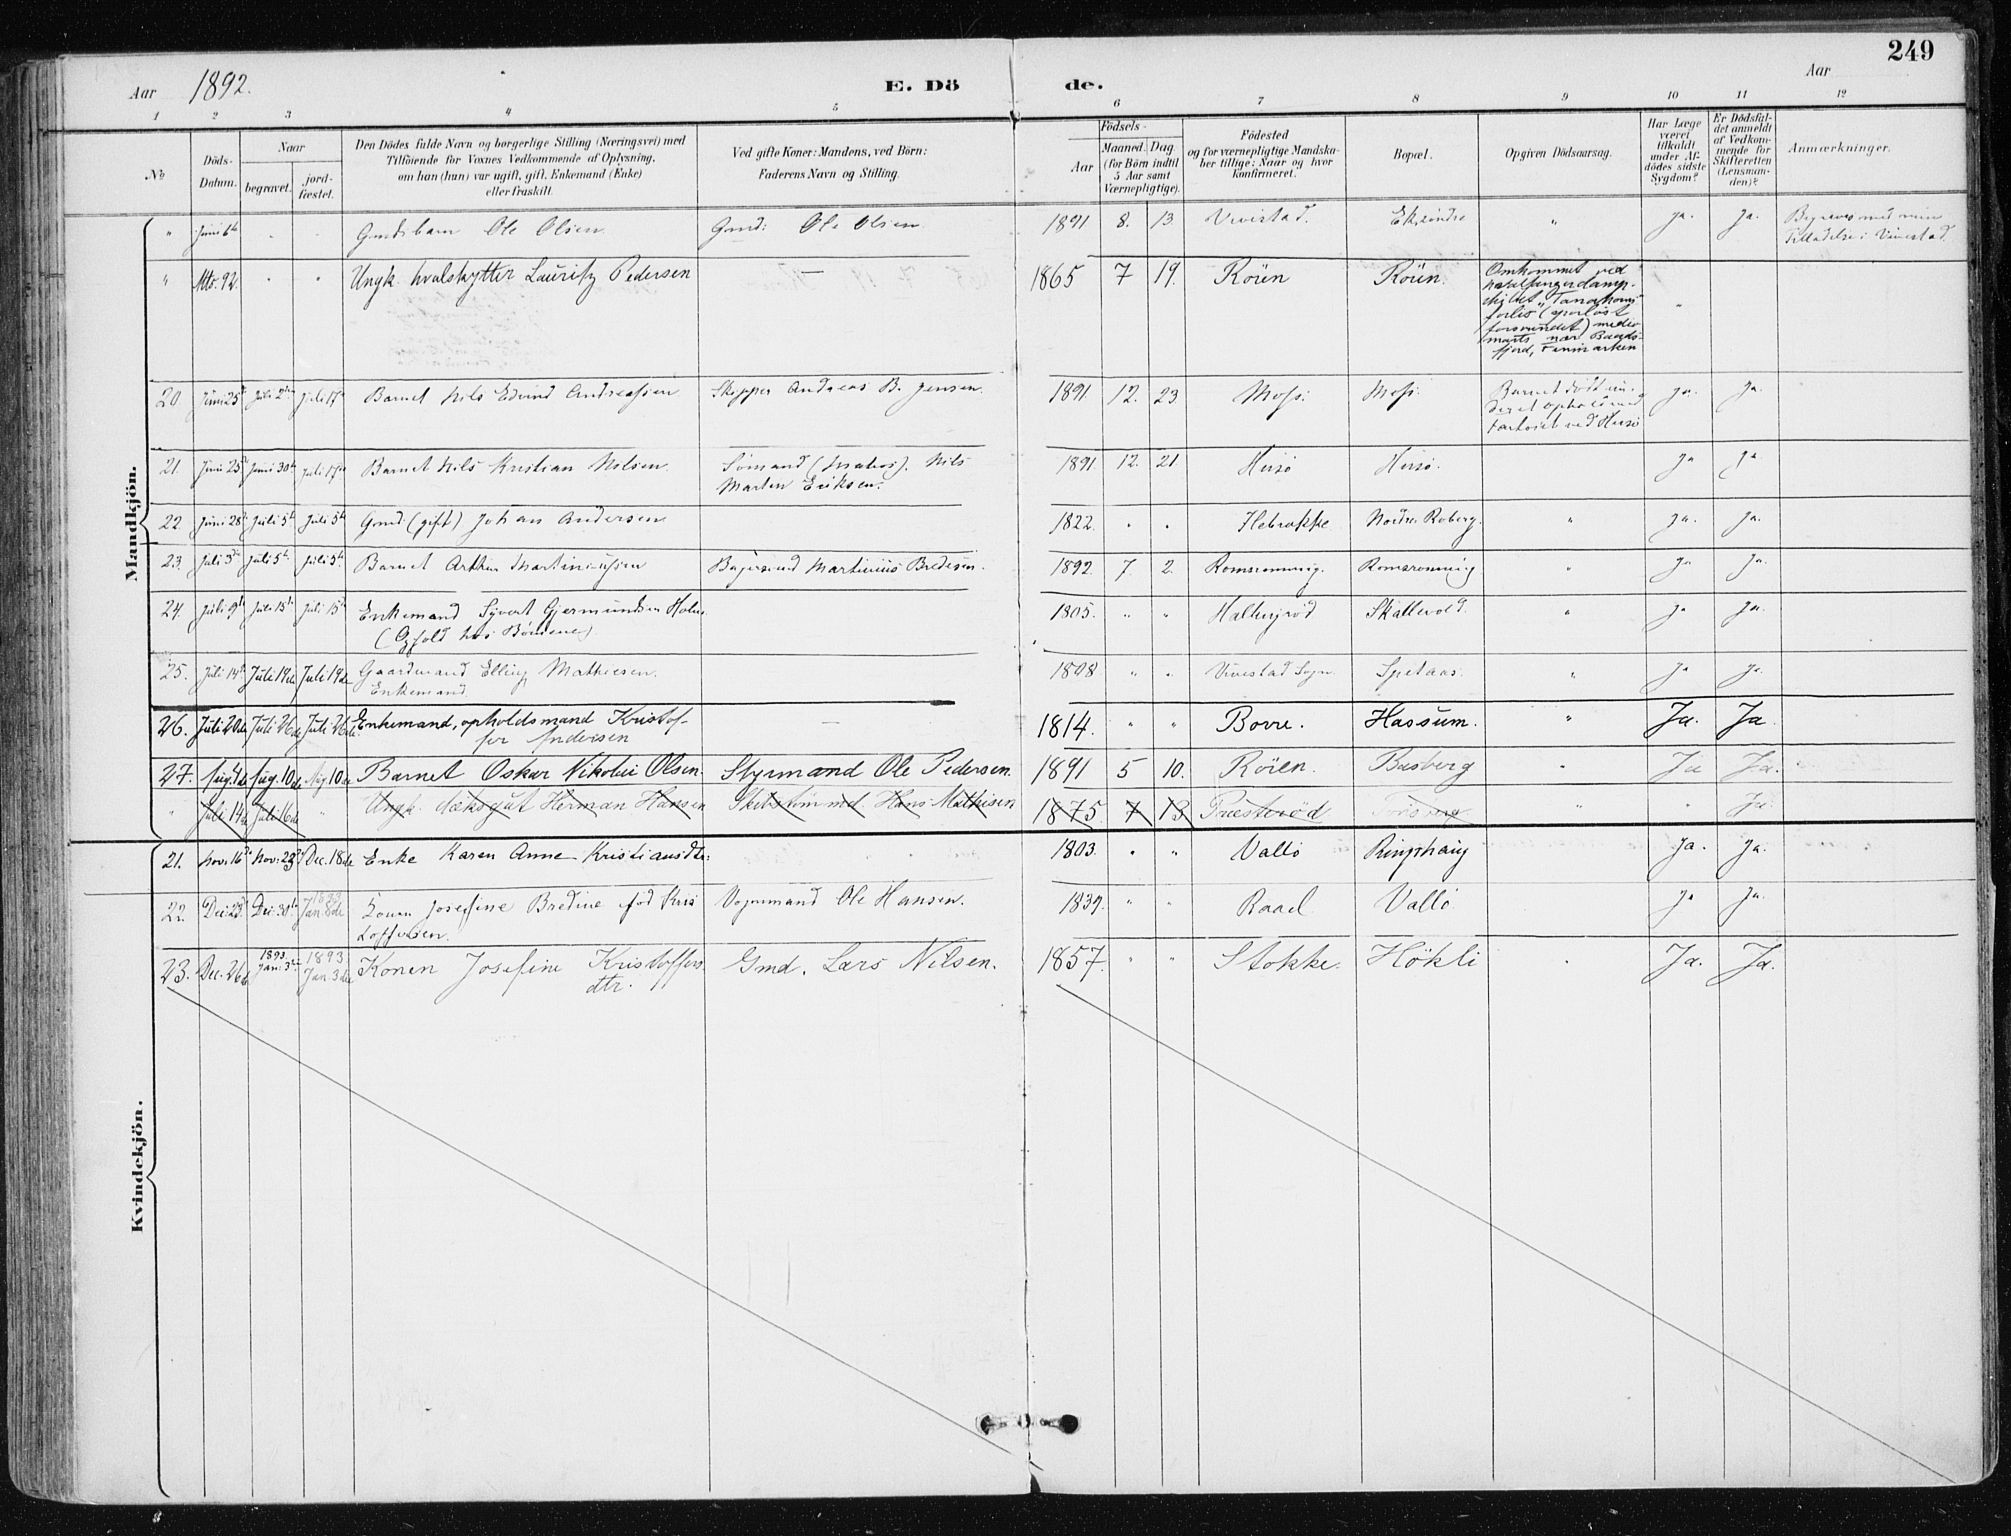 249
Aar 1892.
E. Dö de.
Aar
1 2 3 4 5 6 7 8 9 10 11 12
No
Döds-Datum.
Naar
begravet.
jord-fæstet.
Den Dödes fulde Navn og borgerlige Stilling (Næringsvei) med
Tilföiende for Voxnes Vedkommende af Oplysning,
om han (hun) var ugift, gift, Enkemand (Enke)
eller fraskilt.
Ved gifte Koner: Mandens, ved Börn:
Faderens Navn og Stilling.
Födsels-
Aar
Maaned. Dag
(for Börn indtil
5 Aar samt
Værnepligtige).
Födested
og for værnepligtige Mandska-
ber tillige: Naar og hvor
konfirmeret.
Bopæl.
Opgiven Dödsaarsag.
Har Læge
været
tilkaldt
under Af-
dödes sidste
Sygdom?
Er Dödsfal-
det anmeldt
af Vedkom-
mende for
Skifteretten
(Lensman-
den)?
Anmærkninger.
Mandkjön.
" Juni 6te Gmdsbarn Ole Olsen. Gmd: Ole Olsen 1891 8. 13. Vivestad. " Ja. Ja.
Tilladelse i Vivestad.
" 92. " " Ungk. hvalskytter Lauritz Pedersen — 1865 7 19. Röien Röien.
Omkommet ved
hvalfangerdamp-
forlis (sporløst
forsvundet)
marts nær Baads-
fjord, Finmarken
20 Juni 25de Juli 2den Juli 17de Barnet Nils Edvind Andreassen Skipper Andreas B. Jensen. 1891. 12. 23 Moss. Moss.
Barnet död un-
fartöiet ved Husö
Ja. Ja.
21. Juni 25de Juni 30te Juli 17de Barnet Nils Kristian Nilsen. Sömand (Matros). Nils
Martin Eriksen. 1891. 12. 21 Husö Husö. Ja Ja
22. Juni 28de Juli 5te Juli 5te Gmd. (gift) Johan Andersen 1822. " " Hebrokke Nordre Roberg. " Ja. Ja.
23. Juli 3die Juli 5te Juli 5te Barnet Arthur Martiniussen Martinius Bredesen. 1892. 7. 2. Romsrønning. Romsrønning " Ja Ja.
24. Juli 9de Juli 15de Juli 15de Enkemand Syvert Gjermundsen Holm
1805. " " Skallevold. " Ja Ja.
25. Juli 14de Juli 19de Juli 19de Gaardmand Elling Mathiesen.
Enkemand
1808 " " Vivestad Sogn Spetaas. " Ja Ja.
26. Juli 20de Juli 26de Juli 26de Enkemand, opholdsmand Kristof-
fer Andersen — 1814. " " Borre. Hassum. " Ja. Ja
27. Aug. 4de Aug. 10de Aug. 10de Barnet Oskar Nikolai Olsen. Styrmand Ole Pedersen. 1891 5 10. Röien. Basberg " Ja Ja.
" Juli 14de Juli 16de " Ungk. dæksgut Herman Hansen Skibstömmd. Hans Mathisen 1875 7 13 Præsteröd Tönsberg " " Ja.
Kvindekjön.
21. Nov. 16de Nov. 23de Dec. 18de Enke Karen Anne Kristiansdtr: 1803. " " Vallö Ringshaug Ja. Ja.
22. Dec. 23de Dec. 31te 1893 Jan. 8de Konen Josefine Bredine föd Kris-
toffersen. Ole Hansen. 1839. " " Raael Vallö Ja Ja.
23. Dec. 26de 1893 Jan. 3die 1893 Jan. 3die Konen Josefine Kristoffers-
dtr. Gmd. Lars Nilsen. 1857. " " Stokke. Hökli " Ja. Ja.